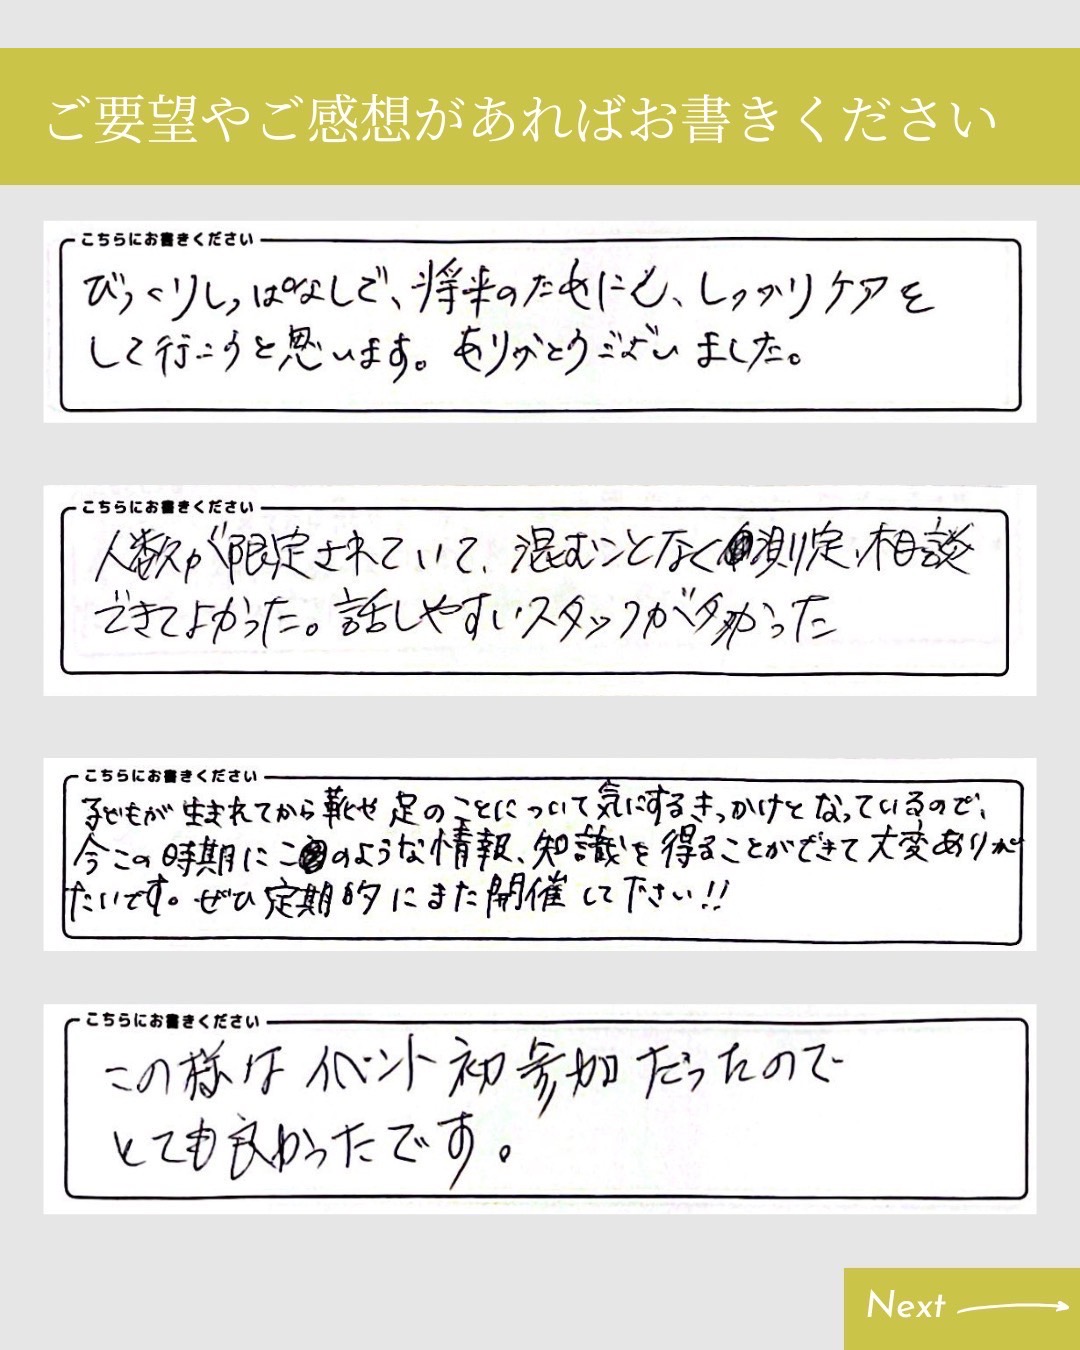 ご要望やご感想があればお書きください
こちらにお書きください
びっくりしっぱなしで、将来のためにも、しっかりケアを
して行こうと思います。ありがとうございました。
こちらにお書きください
人数が限定されていて、混むことなく測定、相談
できてよかった。話しやすいスタッフが多かった
こちらにお書きください
子どもが生まれてから靴や足のことについて気にするきっかけとなっているので、
今この時期にこのような情報、知識を得ることができて大変ありが
たいです。ぜひ定期的にまた開催して下さい!!
こちらにお書きください
この様なイベント初参加だったので
とても良かったです。
Next